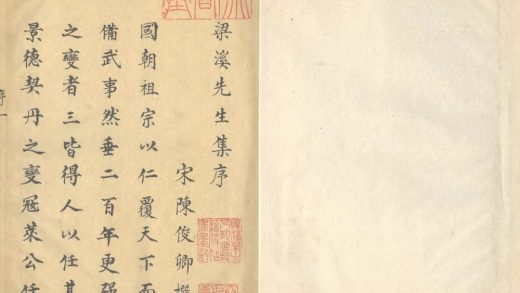 梁溪先生集序
宋陳俊卿撰
國朝祖宗以仁覆天下而
備武事然垂二百年更强
之變者三皆得人以任其
景德契丹之變冦萊公任
序一